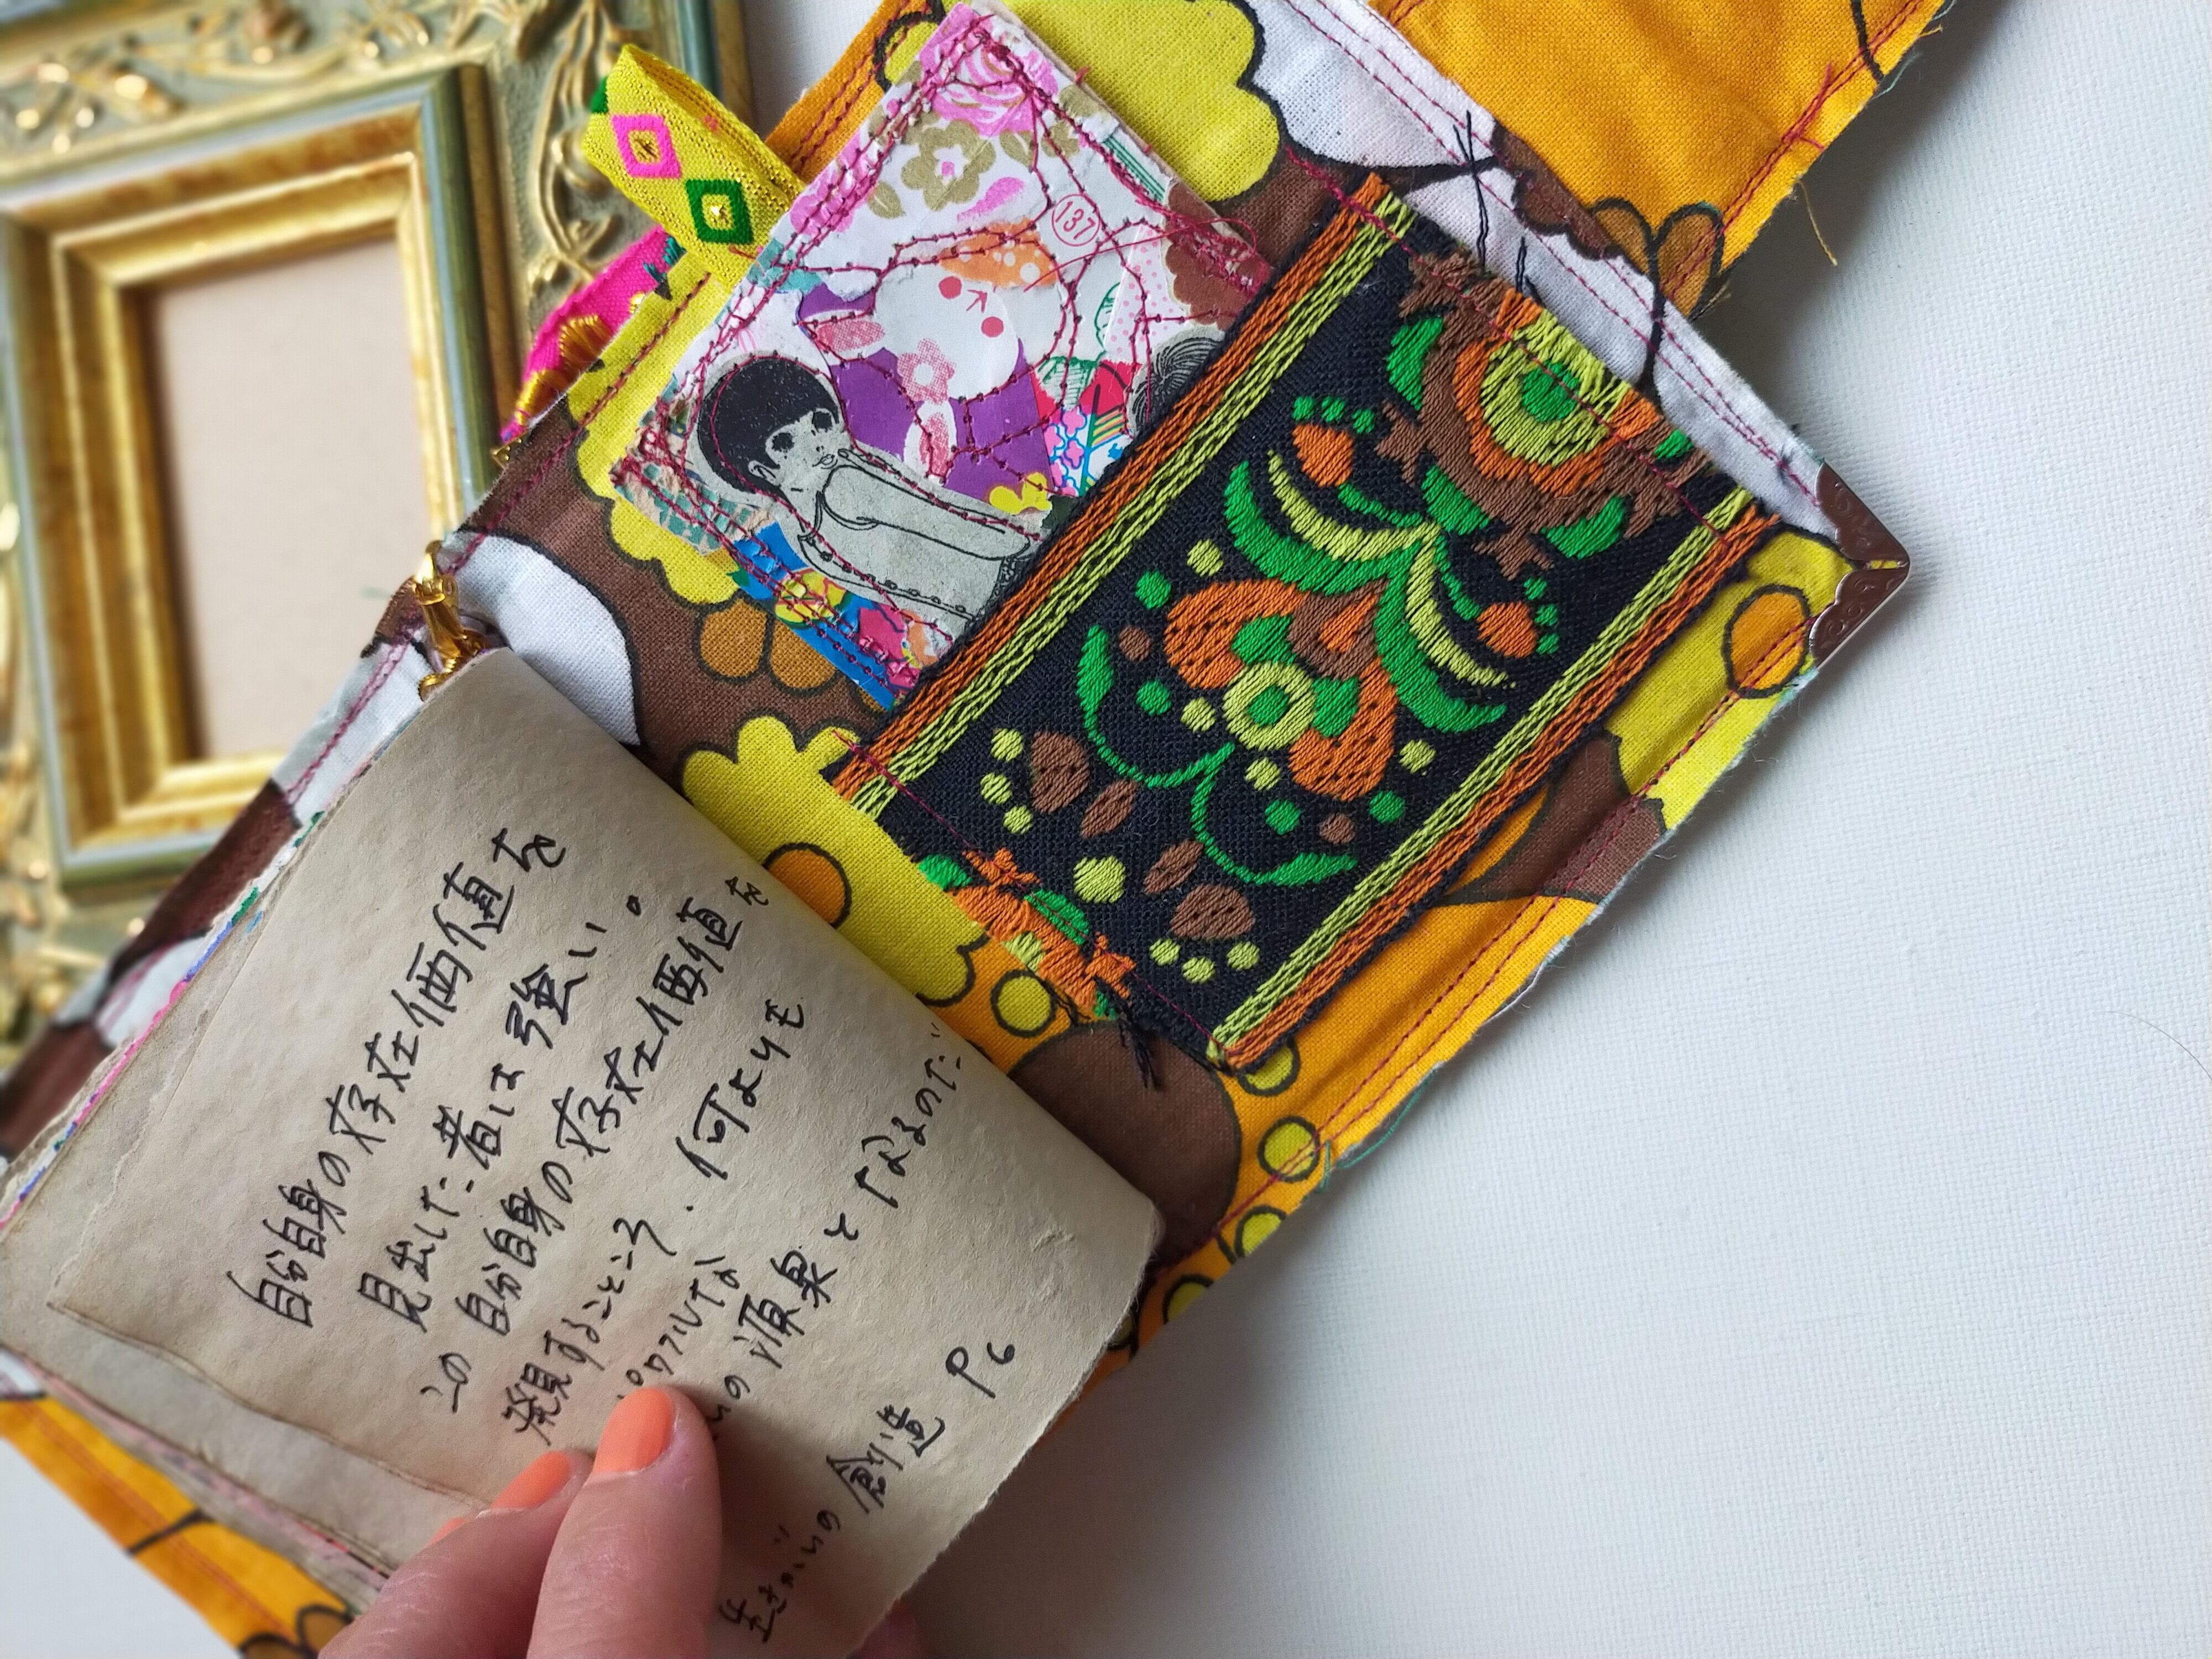 137
自分自身の存在価値を
見出した者は強い。
この自分自身の存在価値を
発見することこそ、何よりも
パワフルな
いの源泉となるのだ
生きがいの創造 P6